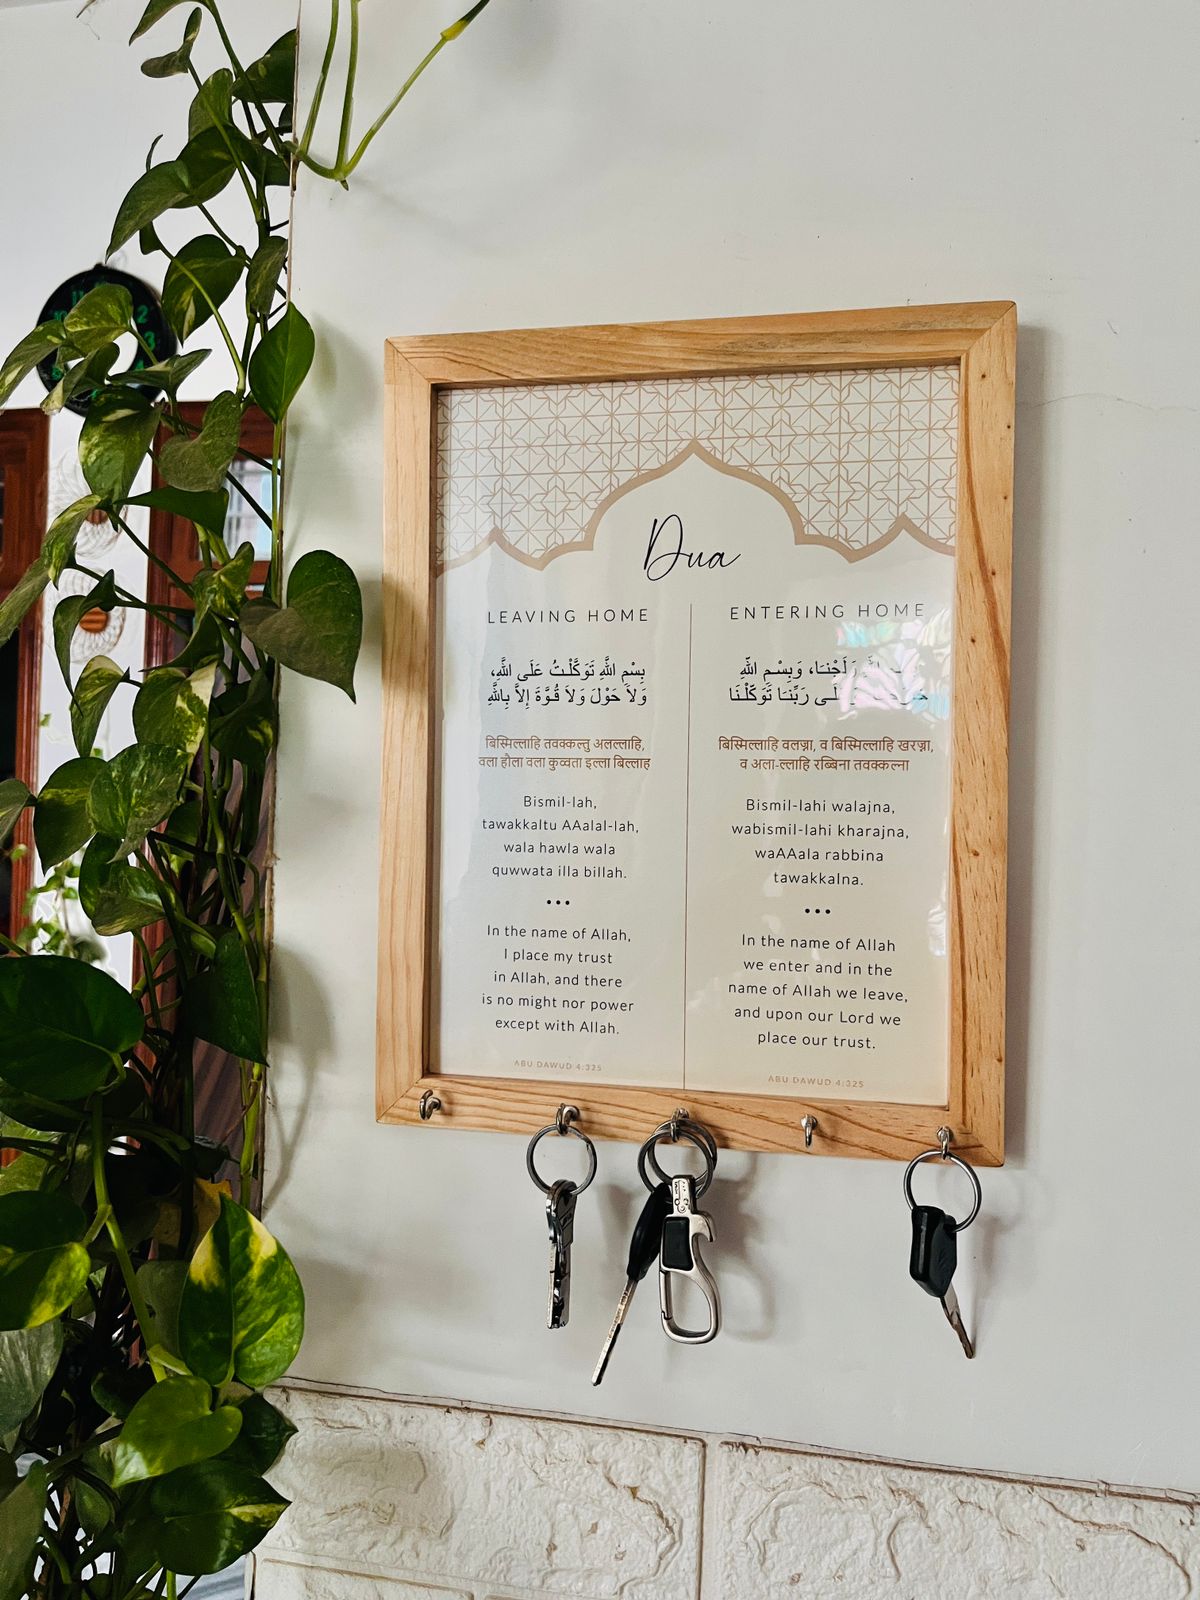 Dua
LEAVING HOME
بِسْمِ اللَّهِ تَوَكَّلْتُ عَلَى اللَّهِ،
وَلاَ حَوْلَ وَلاَ قُوَّةَ إِلاَّ بِاللَّهِ
बिस्मिल्लाहि तवक्कल्तु अलल्लाहि,
वला हौला वला कुव्वता इल्ला बिल्लाह
Bismil-lah,
tawakkaltu AAalal-lah,
wala hawla wala
quwwata illa billah.
•••
In the name of Allah,
I place my trust
in Allah, and there
is no might nor power
except with Allah.
ABU DAWUD 4:325
ENTERING HOME
وَلَجْنَا، وَبِسْمِ اللَّهِ
رَبِّنَا تَوَكَّلْنَا
बिस्मिल्लाहि वलज्ना, व बिस्मिल्लाहि खरज्ना,
व अला-ल्लाहि रब्बिना तवक्कल्ना
Bismil-lahi walajna,
wabismil-lahi kharajna,
waAAala rabbina
tawakkalna.
•••
In the name of Allah
we enter and in the
name of Allah we leave,
and upon our Lord we
place our trust.
ABU DAWUD 4:325